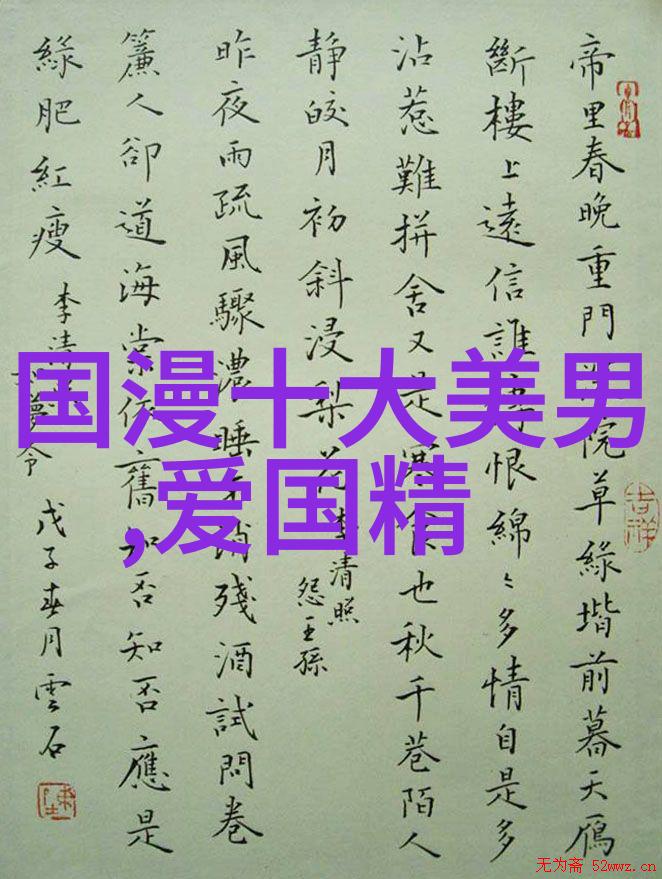 国漫十大美男
,爱国精
帝里春晚重門院草緑堦前暮天鴈
斷樓上遠信誰恨綿〻多情自是多
沾惹難拼舍又是寒食也秋千巷陌人
靜皎月初斜浸梨花
李清照
怨王孫
昨夜雨疏風驟濃睡不消殘酒試問卷
簾人卻道海棠依舊知否知否應是
緑肥紅瘦
李清
夢令
戊子春月雲石
吉祥
无为斋 52wwz.cn